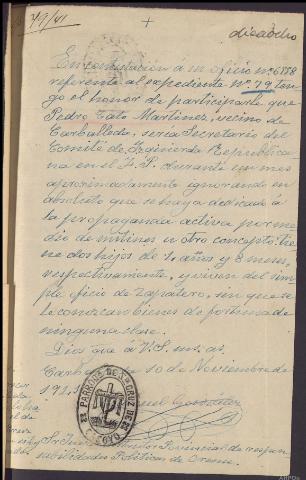 79/41
+
dieciocho
En contestación á su oficio nº 6888
referente al expediente Nº 79 ten-
go el honor de participarle que
Pedro Cato Martinez, vecino de
Carballeda, seria Secretario del
Comité de Izquierda Republica-
na en el F. P. durante un mes
aproximadamente ignorando en
absoluto que se haya dedicado á
la propaganda activa por me-
dio de mitines u otro concepto: tie-
ne dos hijos de 4 años y 8 meses,
respectivamente, y viven del sim-
ple oficio de Zapatero, sin que se
le conozcan bienes de fortuna de
ninguna clase.
Dios que á V.S. ms. as.
10 de Noviembre de
194
PARROQ DE STª CRUZ DE
Gonzalez
Sr. Juez Provincial de respon-
sabilidades Políticas de Orense